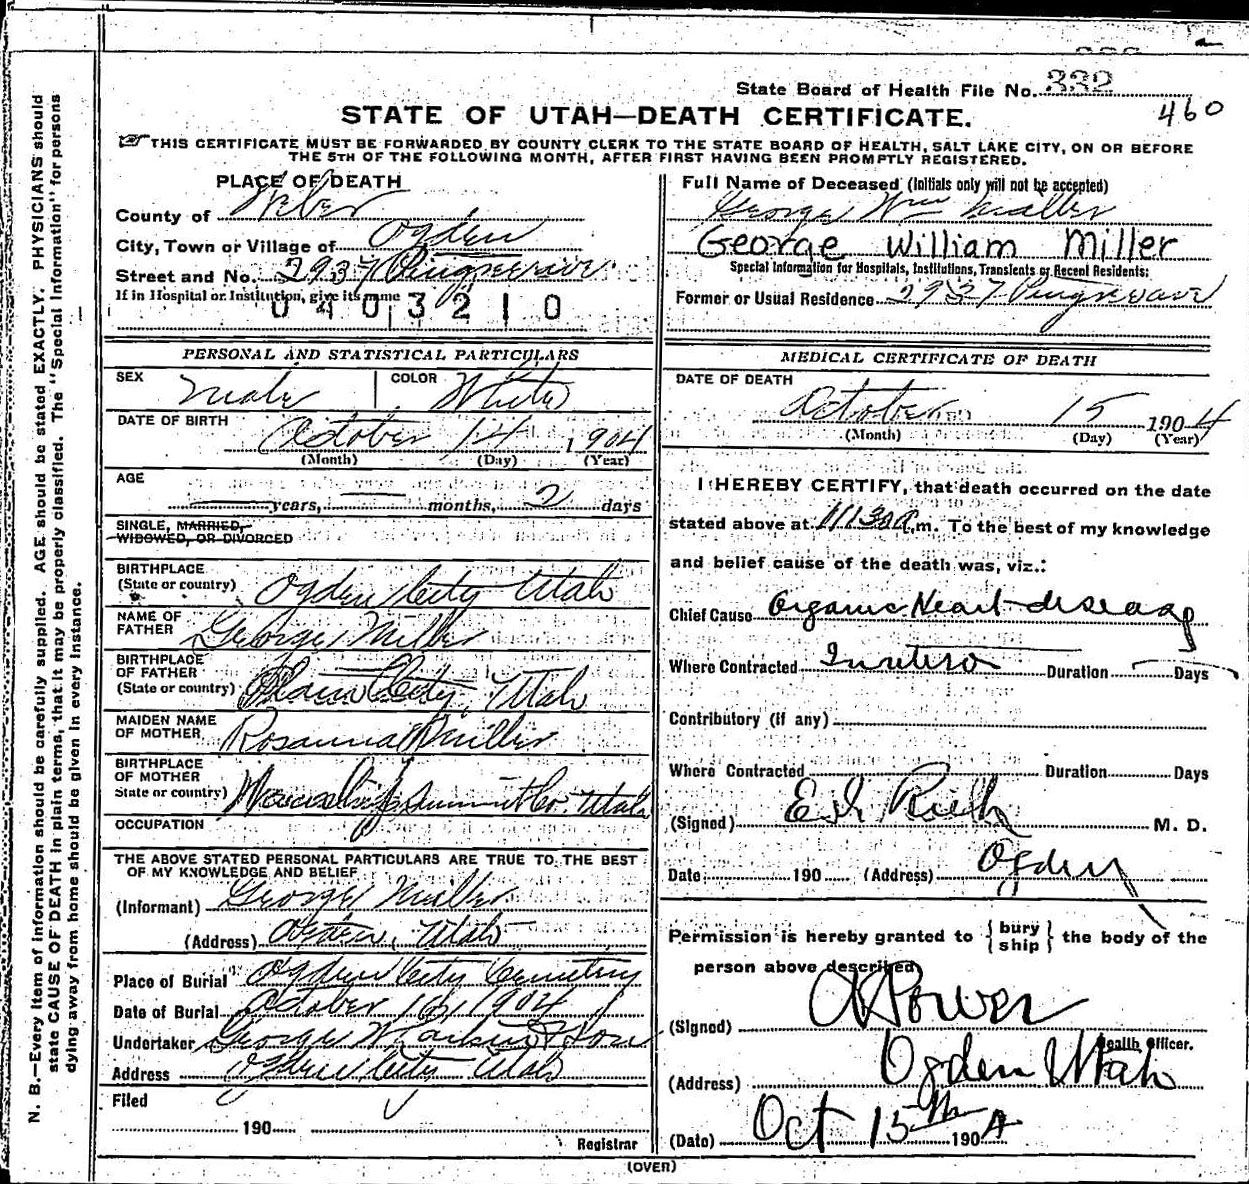 State Board of Health File No. 332
460
STATE OF UTAH—DEATH CERTIFICATE.
THIS CERTIFICATE MUST BE FORWARDED BY COUNTY CLERK TO THE STATE BOARD OF HEALTH, SALT LAKE CITY, ON OR BEFORE
THE 5TH OF THE FOLLOWING MONTH, AFTER FIRST HAVING BEEN PROMPTLY REGISTERED.
N. B.—Every item of information should be carefully supplied. AGE should be stated EXACTLY. PHYSICIANS should
state CAUSE OF DEATH in plain terms, that it may be properly classified. The "Special Information" for persons
dying away from home should be given in every instance.
PLACE OF DEATH
County of Weber
City, Town or Village of Ogden
Street and No. 2937 Pingree ave
If in Hospital or Institution, give its name
0403210
PERSONAL AND STATISTICAL PARTICULARS
SEX Male COLOR White
DATE OF BIRTH October 14 1904
(Month) (Day) (Year)
AGE
years, months, 2 days
SINGLE, MARRIED,
WIDOWED, OR DIVORCED
BIRTHPLACE
(State or country) Ogden City Utah
NAME OF
FATHER George Miller
BIRTHPLACE
OF FATHER
(State or country) Plain City, Utah
MAIDEN NAME
OF MOTHER Rosanna Miller
BIRTHPLACE
OF MOTHER
State or country) Summit Co. Utah
OCCUPATION
THE ABOVE STATED PERSONAL PARTICULARS ARE TRUE TO THE BEST
OF MY KNOWLEDGE AND BELIEF
(Informant) George Miller
(Address) Ogden, Utah
Place of Burial Ogden City Cemetery
Date of Burial October 16, 1904
Undertaker George W. Larkin & Son
Address Ogden City Utah
Filed
190
Registrar
Full Name of Deceased (Initials only will not be accepted)
George Wm Miller
George William Miller
Special Information for Hospitals, Institutions, Transients or Recent Residents:
Former or Usual Residence 2937 Pingree ave
MEDICAL CERTIFICATE OF DEATH
DATE OF DEATH
October 15 1904
(Month) (Day) (Year)
I HEREBY CERTIFY, that death occurred on the date
stated above at 11:30 A.m. To the best of my knowledge
and belief cause of the death was, viz.:
Chief Cause Organic Heart disease
Where Contracted In utero Duration Days
Contributory (if any)
Where Contracted Duration Days
(Signed) M. D.
Date 190 (Address) Ogden
Permission is hereby granted to { bury ship } the body of the
person above described
(Signed) Power
Health Officer.
(Address) Ogden Utah
(Date) Oct 15th 1904
(OVER)